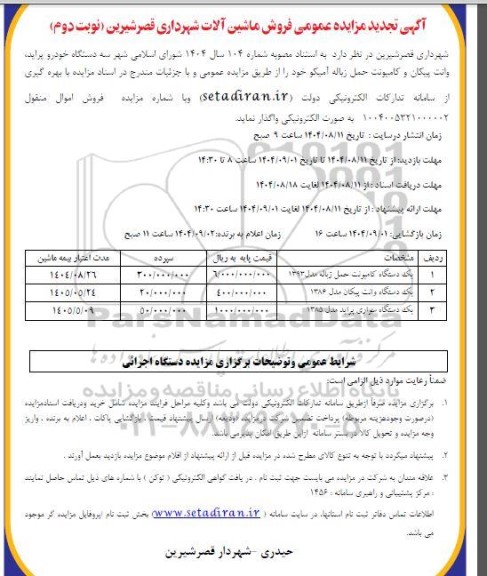 آگهی تجدید مزایده عمومی فروش ماشین آلات شهرداری قصرشیرین (نوبت دوم)
شهرداری قصرشیرین در نظر دارد به استناد مصوبه شماره ۱۰۴ سال ۱۴۰۴ شورای اسلامی شهر سه دستگاه خودرو پراید،
وانت پیکان و کامیونت حمل زباله آمیکو خود را از طریق مزایده عمومی و با جزئیات مندرج در اسناد مزایده با بهره گیری
از سامانه تدارکات الکترونیکی دولت (setadiran.ir) وبا شماره مزایده فروش اموال منقول
۱۰۰۴۰۰۵۲۲۱۰۰۰۰۰۲ به صورت الکترونیکی واگذار نماید.
زمان انتشار درسایت : تاریخ ۱۴۰۴/۰۸/۱۱ ساعت ۹ صبح
مهلت بازدید: از تاریخ ۱۴۰۴/۰۸/۱۱ تا تاریخ ۱۴۰۴/۰۹/۰۱ ساعت ۸ تا ۱۴:۳۰
مهلت دریافت اسناد : از ۱۴۰۴/۰۸/۱۱ لغایت ۱۴۰۴/۰۸/۱۸
مهلت ارائه پیشنهاد : از تاریخ ۱۴۰۴/۰۸/۱۱ لغایت ۱۴۰۴/۰۹/۰۱ ساعت ۱۴:۳۰
زمان بازگشایی: ۱۴۰۴/۰۹/۰۱ ساعت ۱۶ زمان اعلام به برنده: ۱۴۰۴/۰۹/۰۲ ساعت ۱۱ صبح
ردیف مشخصات قیمت پایه به ریال سپرده مدت اعتبار بیمه ماشین
۱ یک دستگاه کامیونت حمل زباله مدل ۱۳۹۳ ۶/۰۰۰/۰۰۰/۰۰۰ ۳۰۰/۰۰۰/۰۰۰ ۱۴۰۴/۰۸/۲۶
۲ یک دستگاه وانت پیکان مدل ۱۳۸۶ ۴۰۰/۰۰۰/۰۰۰ ۲۰/۰۰۰/۰۰۰ ۱۴۰۵/۰۵/۲۴
۳ یک دستگاه سواری پراید مدل ۱۳۸۵ ۱/۰۰۰/۰۰۰/۰۰۰ ۵۰/۰۰۰/۰۰۰ ۱۴۰۵/۵/۰۹
ParsNamadData
شرایط عمومی وتوضیحات برگزاری مزایده دستگاه اجرائی
پایگاه اطلاع رسانی مناقصه و مزایده
ضمناً رعایت موارد ذیل الزامی است:
۱. برگزاری مزایده صرفا ازطریق سامانه تدارکات الکترونیکی دولت می باشد وکلیه مراحل فرایند مزایده شامل خرید ودریافت اسنادمزایده
(درصورت وجودهزینه مربوطه) پرداخت تضمین شرکت درمزایده (ودیعه) ارسال پیشنهاد قیمت ، بازگشایی پاکات ، اعلام به برنده ، واریز
وجه مزایده و تحویل کالا در بستر سامانه ازاین طریق امکان پذیر می باشد.
۲. پیشنهاد میگردد با توجه به تنوع کالای مطرح شده در مزایده قبل از ارائه پیشنهاد از اقلام موضوع مزایده بازدید بعمل آورند .
۳. علاقه مندان به شرکت در مزایده می بایست جهت ثبت نام ، در یافت گواهی الکترونیکی ( توکن ) با شماره های ذیل تماس حاصل نمایند
، مرکز پشتیبانی و راهبری سامانه : ۱۴۵۶
اطلاعات تماس دفاتر ثبت نام استانها، در سایت سامانه ( www.setadiran.ir) بخش ثبت نام /پروفایل مزایده گر موجود
می باشد.
حیدری –شهردار قصرشیرین